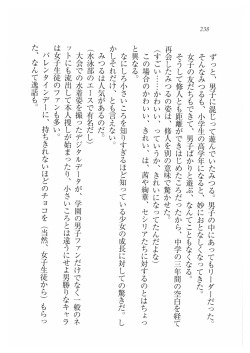 238
ずっと、男子に混じって遊んでいたみつる。男子の中にあってもリーダーだった。
そんなみつるも、小学生の高学年になると、妙におとなしくなってきた。
女子の友だちもできて、男子ばかりと遊ぶ、ということもなくなった。
そうして修人とも距離ができはじめたころだったから、中学の三年間の空白を経て
再会したみつるの姿は、修人を別の意味で驚かせた。
(すごい……かわいい、っていうか、きれいになってたんだよな)
この場合のかわいい、きれい、は、茜や絢華、セシリアたちに対するのとはちょっ
と異なる。
なにしろ小さいころを知りすぎるほど知っている少女の成長に対しての驚きだ。し
かし、それだけ、とも言い切れない。
みつるは人気があるのだ。
(水泳部のエースで有名だし)
大会での水着姿を撮ったデジタルデータが、学園の男子ファンだけでなく一般のネ
ットにも流出して本人探しが始まったり、小さいころとは違うにせよ男勝りなキャラ
は女子生徒のファンも多く、
バレンタインデーに、持ちきれないほどのチョコを(当然、女子生徒から)もらっ
た、なんて逸話も。